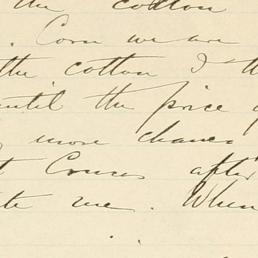 the cotton
. Corn we are
the cotton I
until the price
more chance
Comes after
me. When